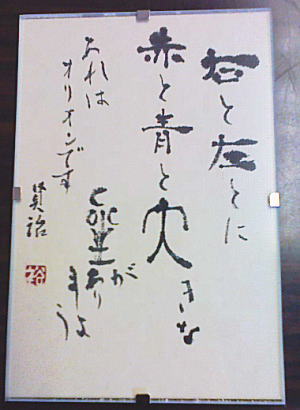 右と左とに
赤と青と大きな
星がありましよう
あれは
オリオンです
賢治
裕